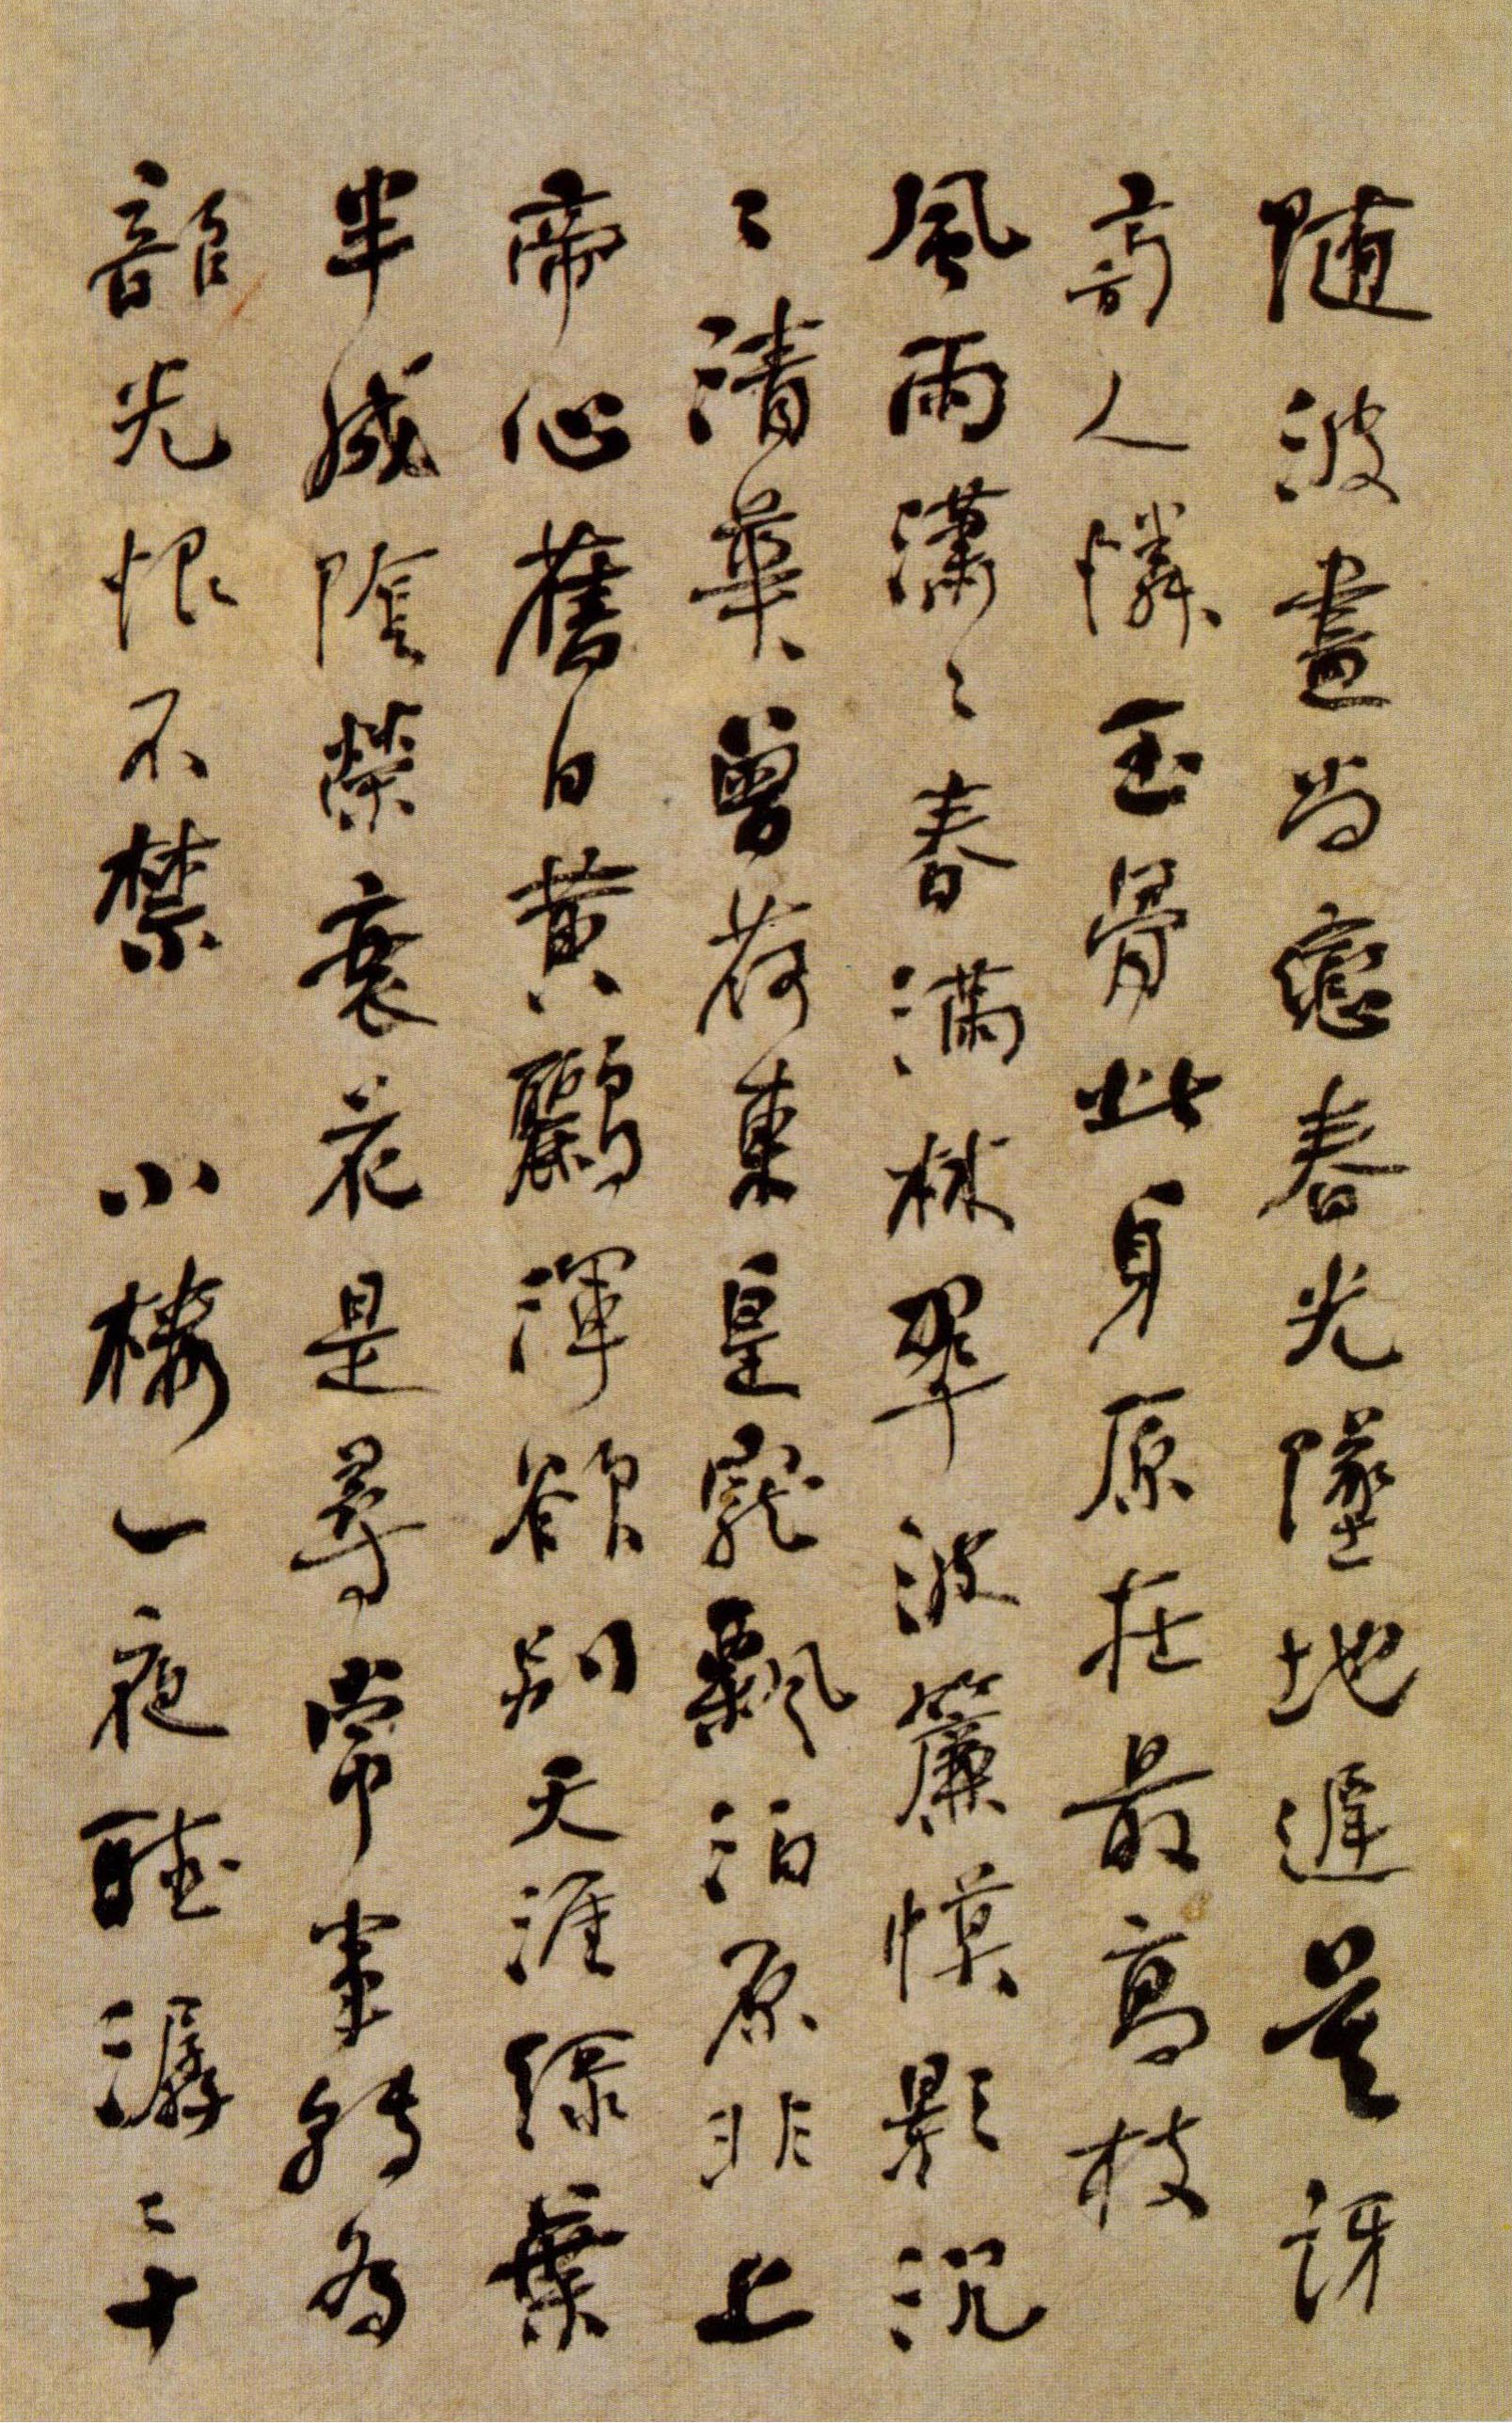 随波盡尚戀春光墜地遲莫訝
高人憐玉骨此身原在最高枝
風雨瀟〻春滿林翠波簾幙影沉
〻清華曾荷東皇寵飄泊原非上
帝心舊日黃鸝渾欲別天涯綠葉
半成陰榮衰花是尋常事轉為
韶光恨不禁 小樓一夜聽潺〻十